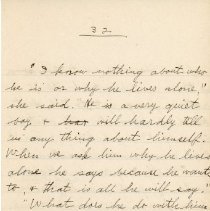 32
"I know nothing about who
he is or why he lives alone,"
she said. He is a very quiet
boy & will hardly tell
us any thing about himself.
When we ask him why he lives
alone he says because he wants
to, & that is all he will say."
"What does he do with him